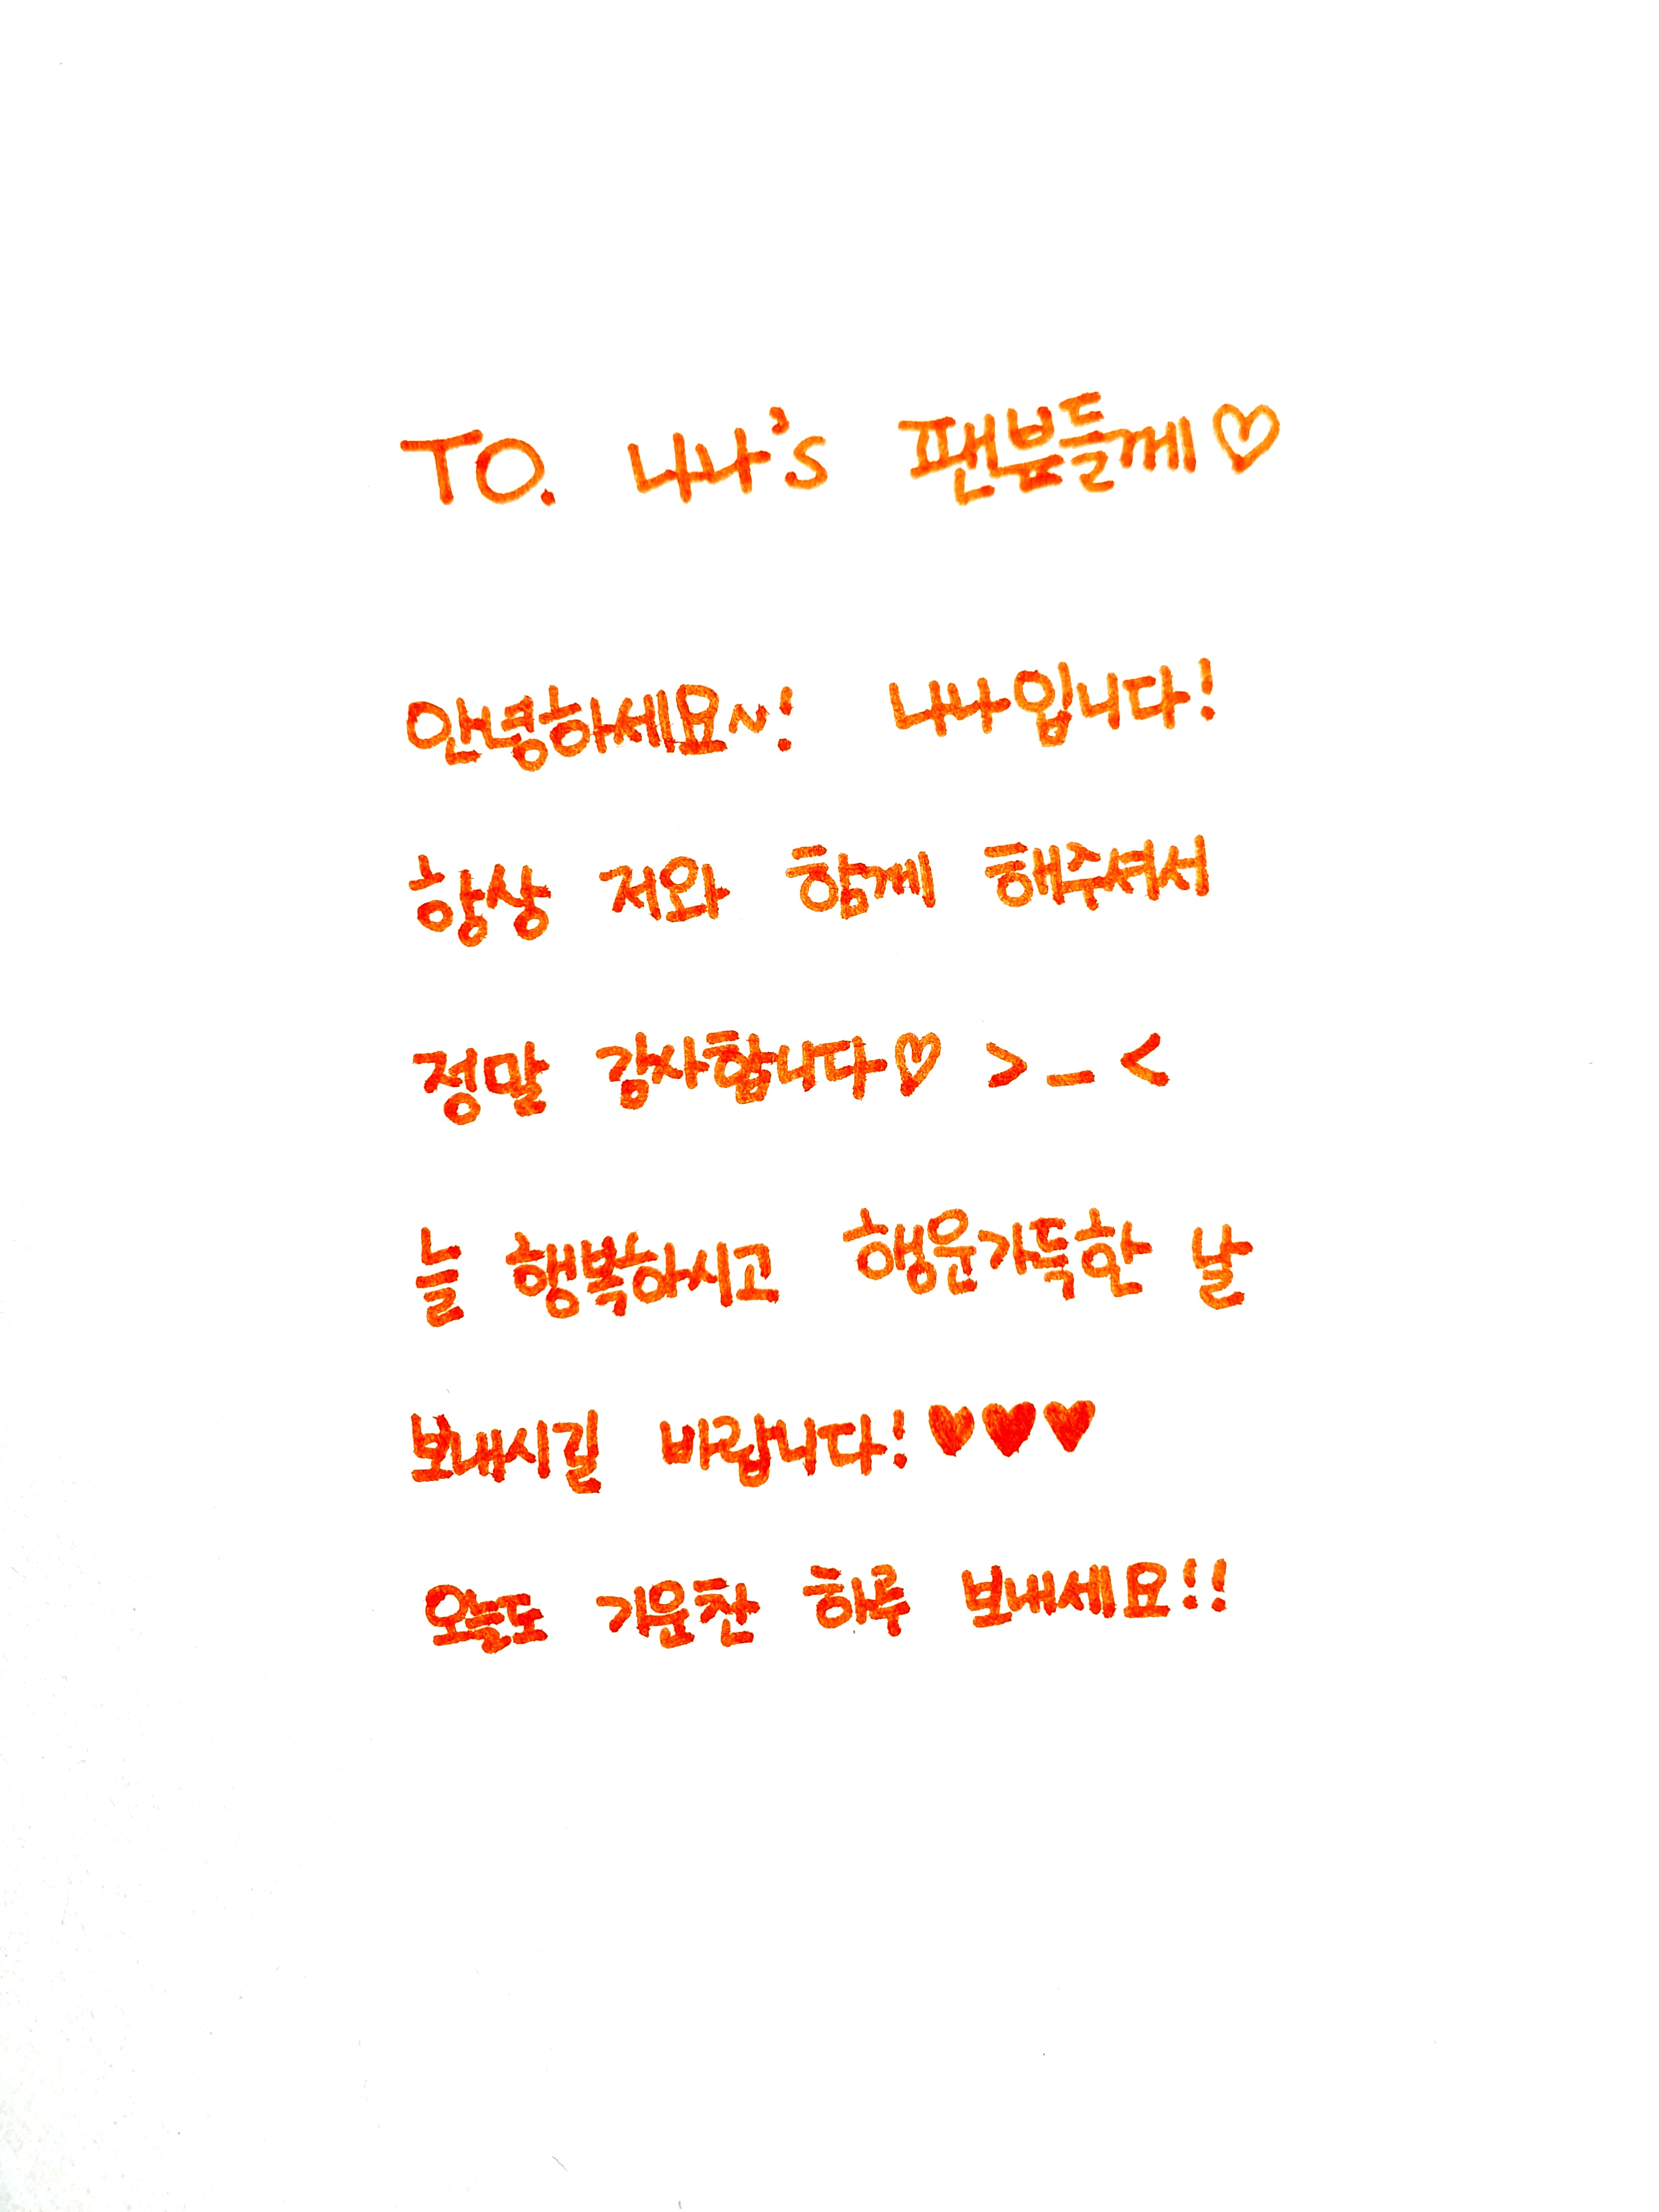 TO. 나나's 팬분들께♡
안녕하세요~! 나나입니다!
항상 저와 함께 해주셔서
정말 감사합니다♡ >_<
늘 행복하시고 행운가득한 날
보내시길 바랍니다!♥♥♥
오늘도 기운찬 하루 보내세요!!